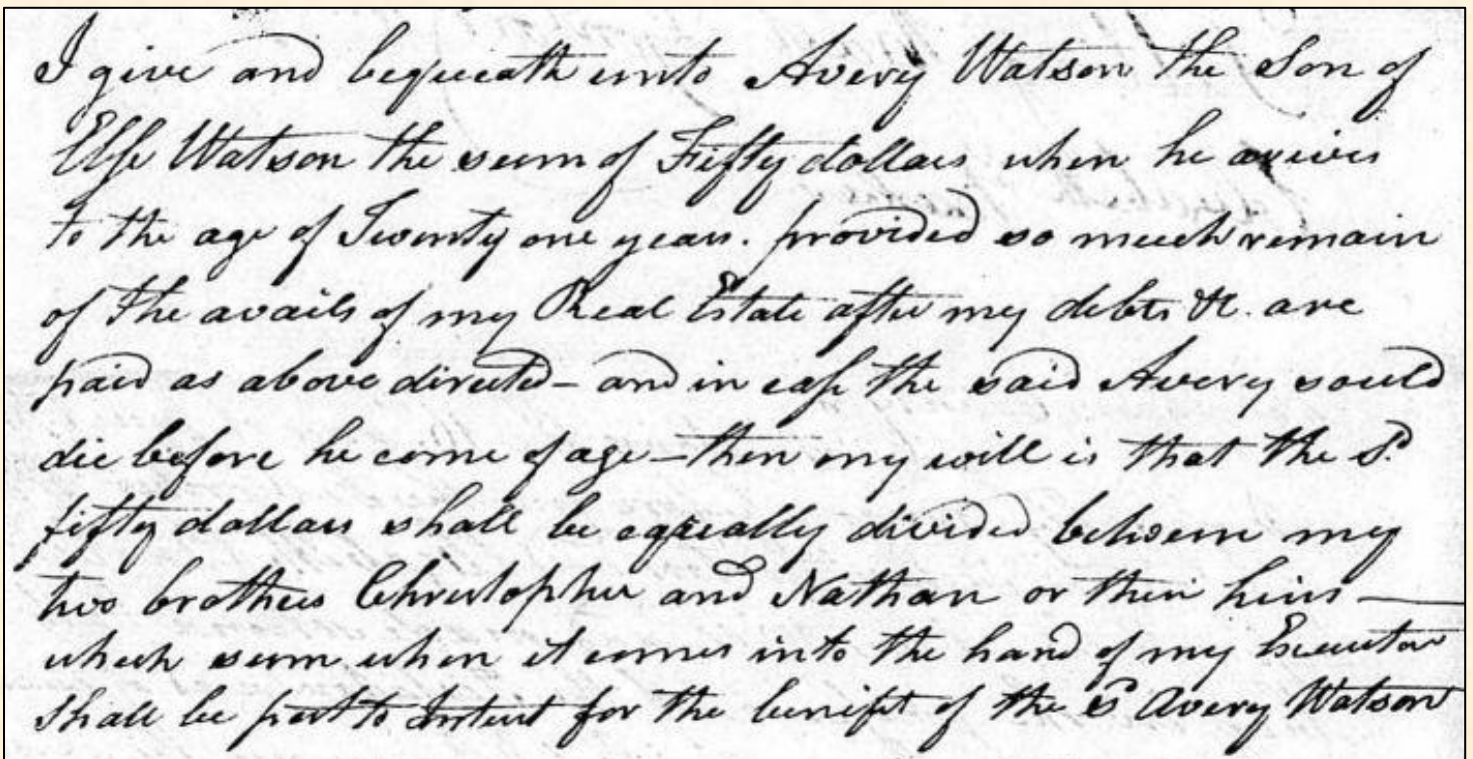 I give and bequeath unto Avery Watson the Son of
Else Watson the sum of Fifty dollars when he arives
to the age of Twenty one years. provided so much remain
of the avails of my Real Estate after my debts &c. are
paid as above directed – and in case the said Avery sould
die before he come of age – then my will is that the sd.
fifty dollars shall be equally divided between my
two brothers Christopher and Nathan or their heirs —
which sum when it comes into the hand of my Executor
shall be put to Intrest for the benifit of the sd Avery Watson